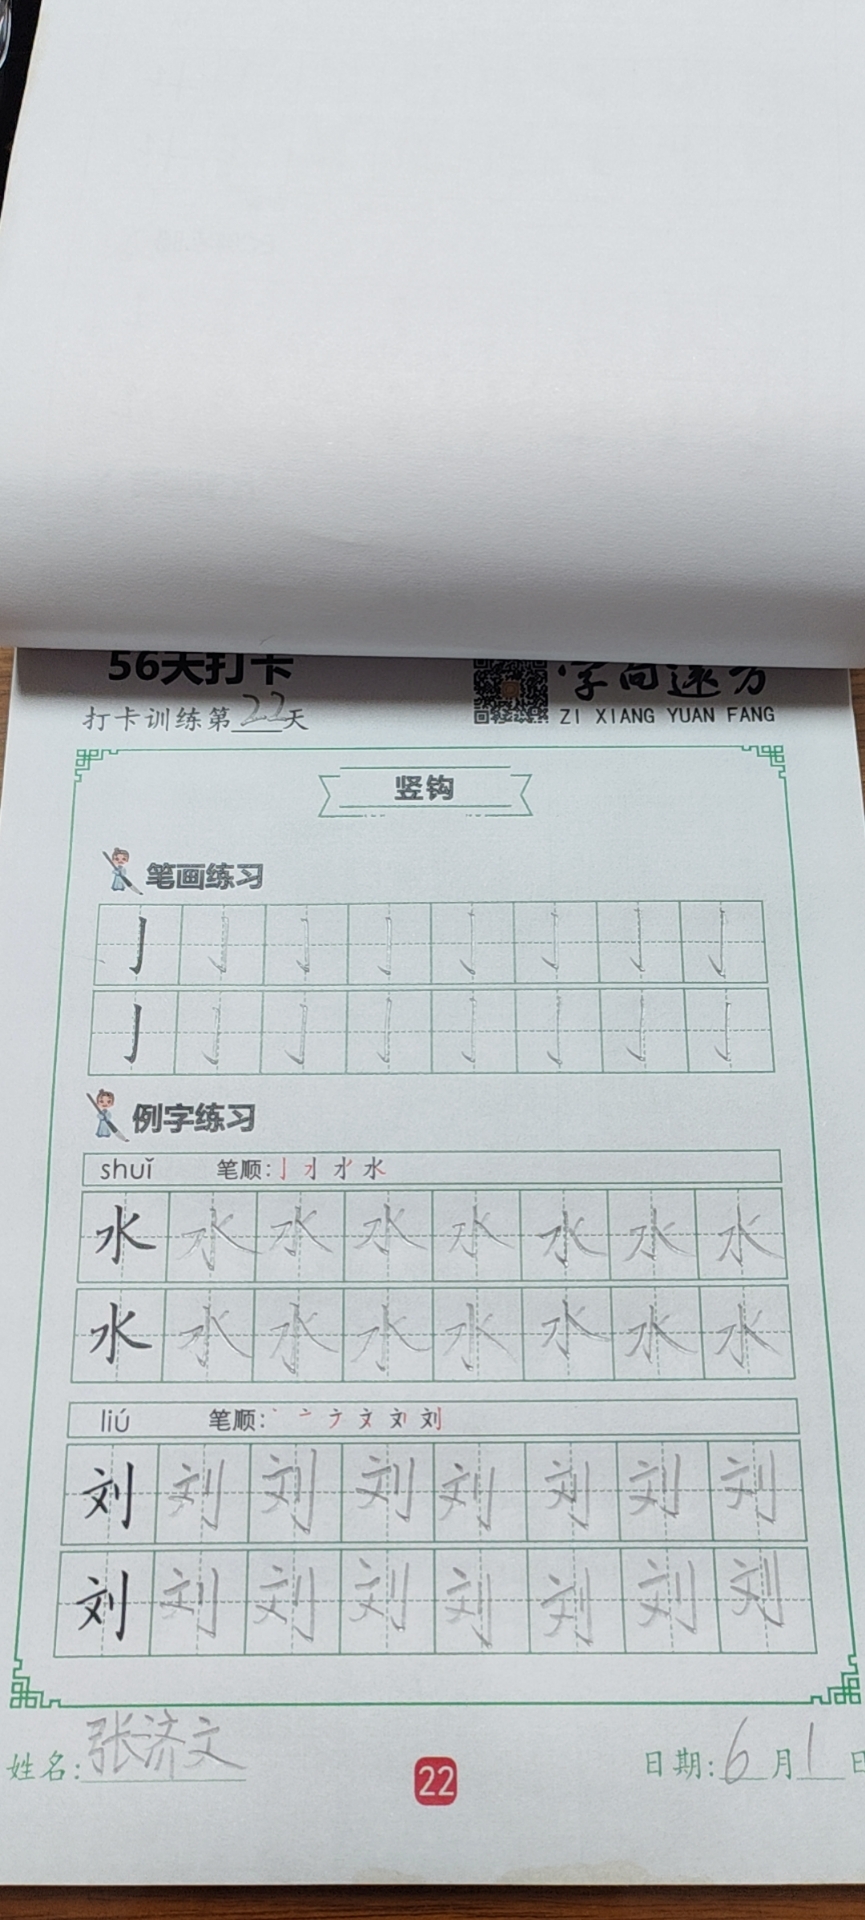 56天打卡
字向远方
打卡训练第22天
ZI XIANG YUAN FANG
竖钩
笔画练习
亅 亅 亅 亅 亅 亅 亅 亅
亅 亅 亅 亅 亅 亅 亅 亅
例字练习
shuǐ 笔顺:
水 水 水 水 水 水 水 水
水 水 水 水 水 水 水 水
liú 笔顺:
刘 刘 刘 刘 刘 刘 刘 刘
刘 刘 刘 刘 刘 刘 刘 刘
姓名:张济文
22
日期:6月1日